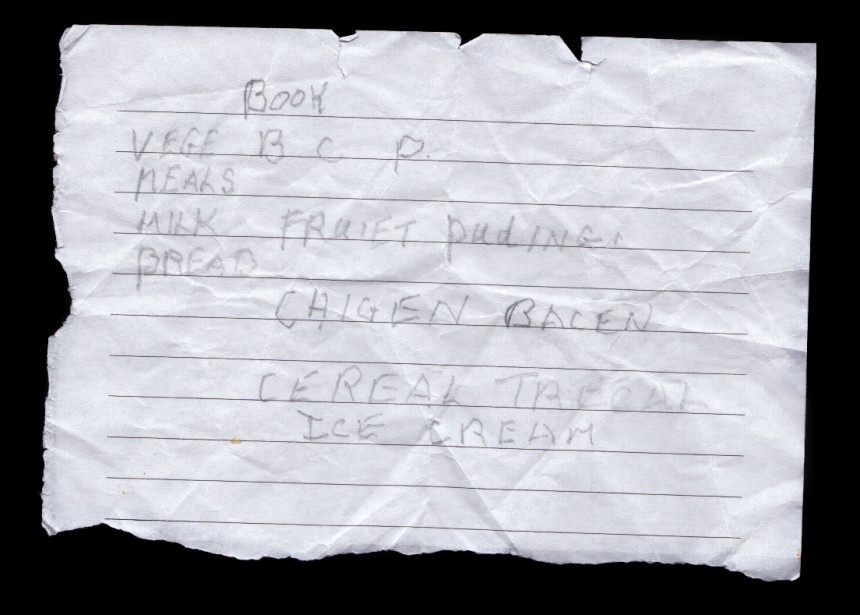 BOOK
VEGE B C P.
MEALS
MILK FRUIET PUdING
BREAD
CHIGEN BACEN
CEREAL
ICE CREAM